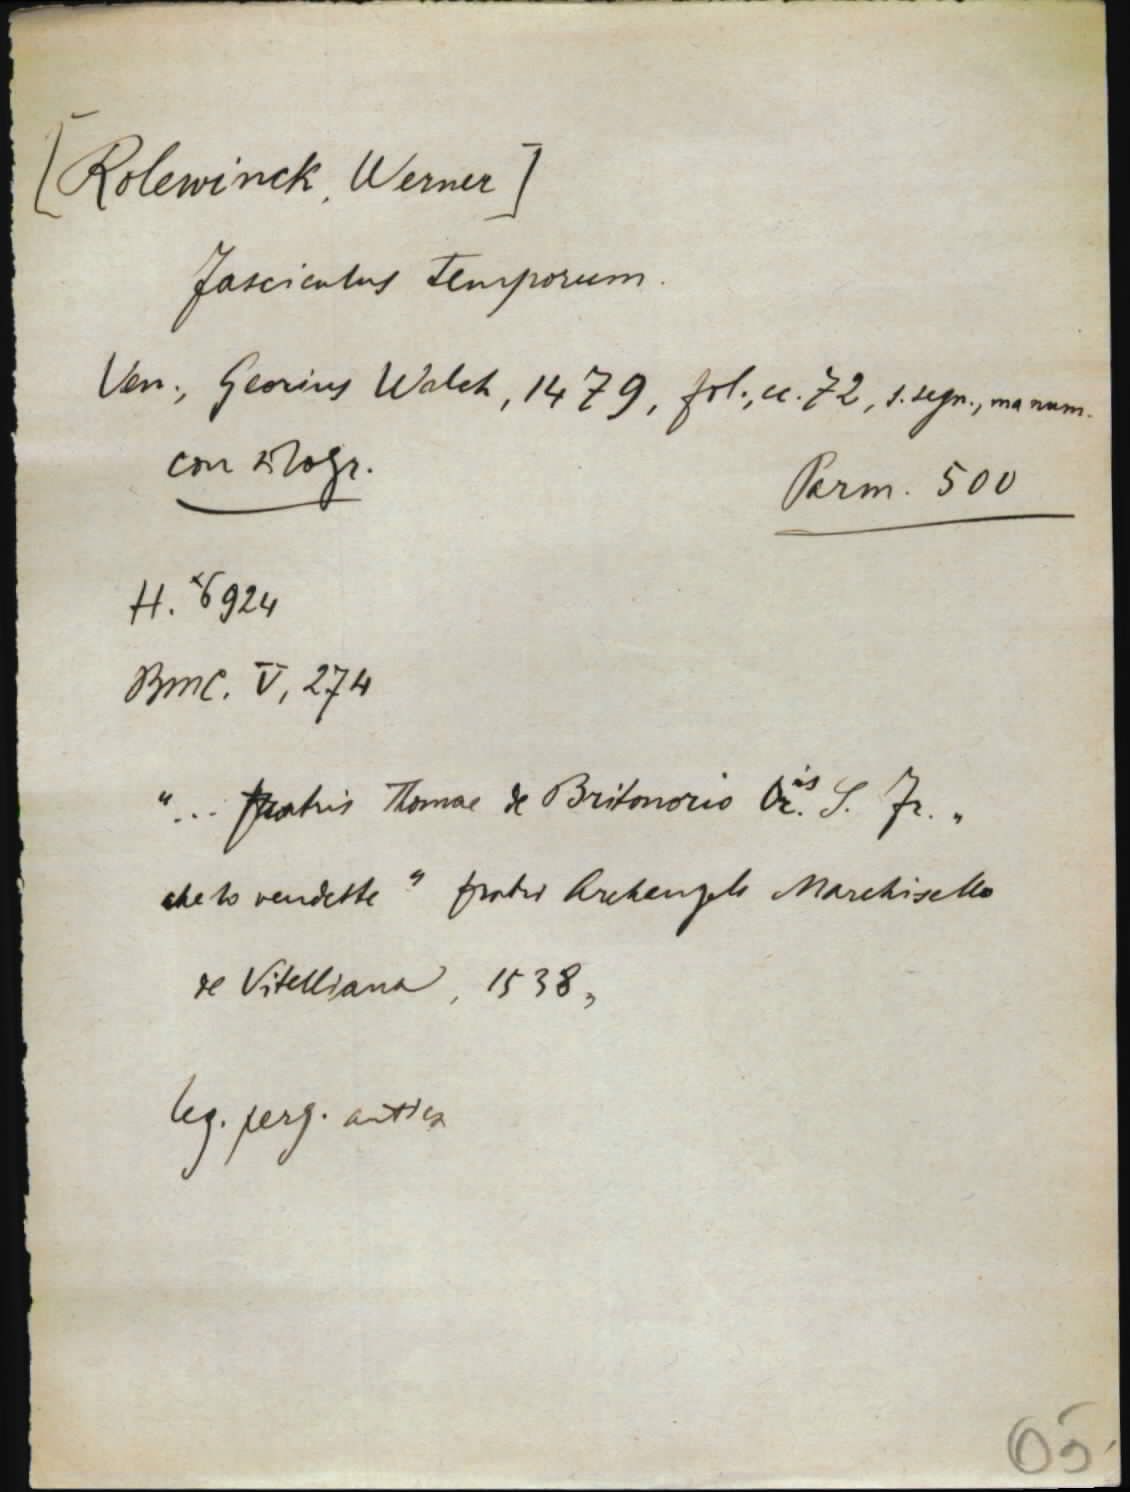 [Rolewinck, Werner]
Fasciculus temporum.
Ven., Georius Walch, 1479, fol., cc. 72, s. segn., ma num.
con silogr.
Parm. 500
H. *6924
BMC. V, 274
"... fratris Thomae de Britonorio Or.is S. Fr. "
che lo vendette " fratri Archangelo Marchisello
de Vitelliana, 1538"
leg. perg. antica